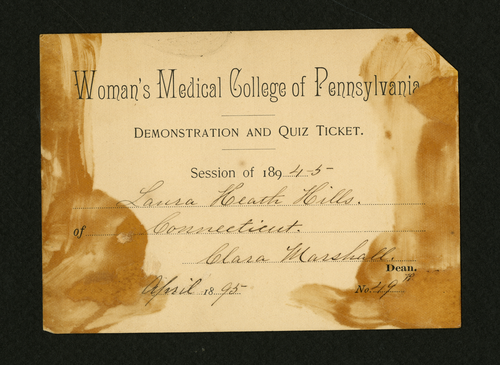 Woman's Medical College of Pennsylvania
DEMONSTRATION AND QUIZ TICKET.
Session of 1894-5
Laura Heath Hills.
of Connecticut.
Clara Marshall.
Dean.
April 1895 No.